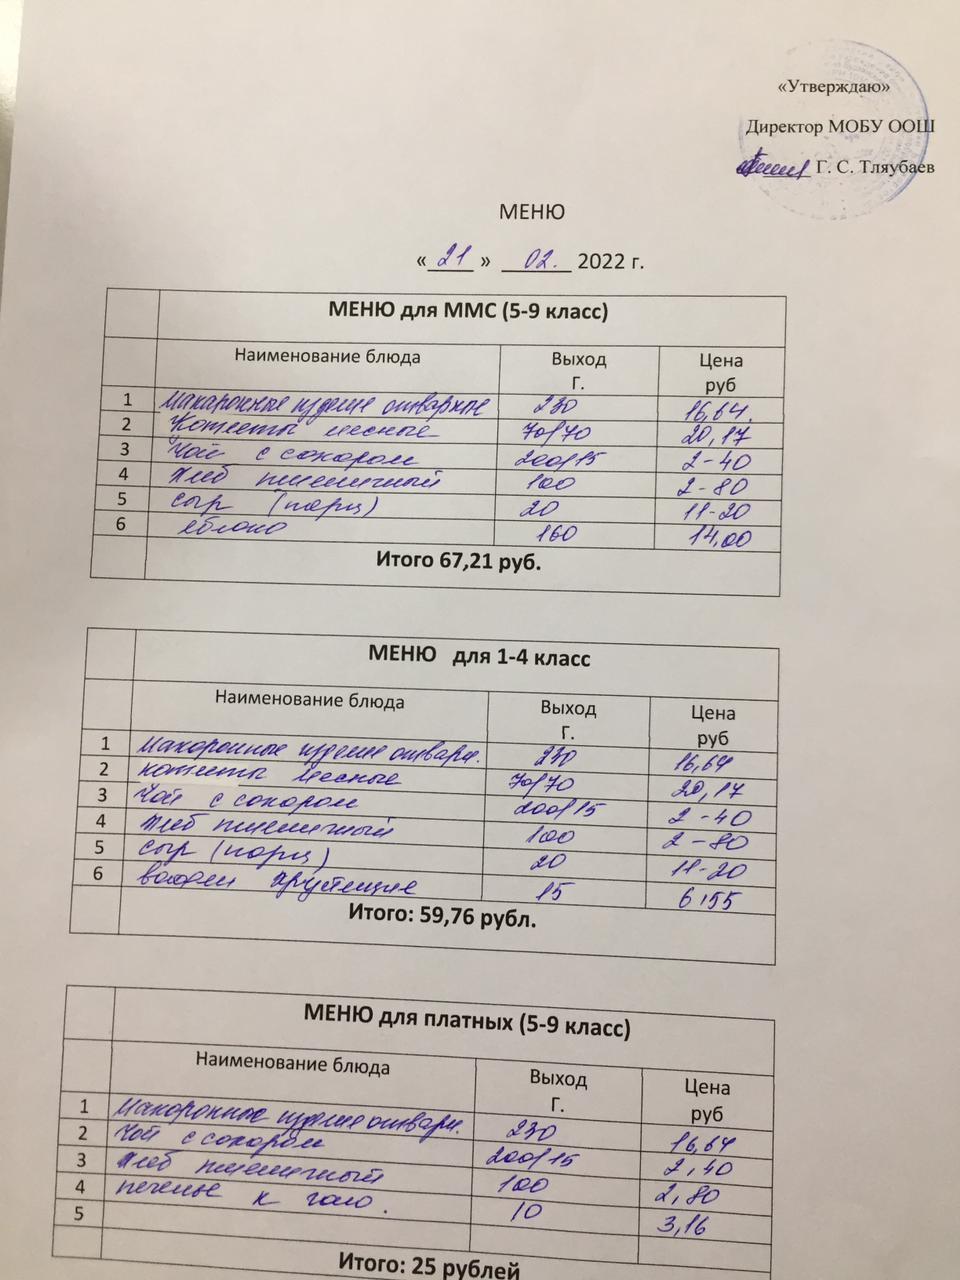 «Утверждаю»
Директор МОБУ ООШ
Г. С. Тляубаев
МЕНЮ
« 21 » 02. 2022 г.
МЕНЮ для ММС (5-9 класс)
Наименование блюда Выход Г. Цена руб
1 Макаронные изделие отварные 230 16,64.
2 Котлеты мясные 70/70 20,17
3 Чай с сахаром 200/15 2-40
4 Хлеб пшеничный 100 2-80
5 сыр (порц) 20 11-20
6 яблоко 160 14,00
Итого 67,21 руб.
МЕНЮ для 1-4 класс
Наименование блюда Выход Г. Цена руб
1 Макоронные изделие отварн. 230 16,64
2 котлеты мясные 70/70 20,17
3 Чай с сахаром 200/15 2-40
4 Хлеб пшеничный 100 2-80
5 сыр (порц) 20 11-20
6 вафли хрустящие 15 6,55
Итого: 59,76 рубл.
МЕНЮ для платных (5-9 класс)
Наименование блюда Выход Г. Цена руб
1 Макоронные изделие отварн. 230 16,64
2 Чай с сахаром 200/15 2,40
3 Хлеб пшеничный 100 2,80
4 печенье к чаю. 10 3,16
5
Итого: 25 рублей